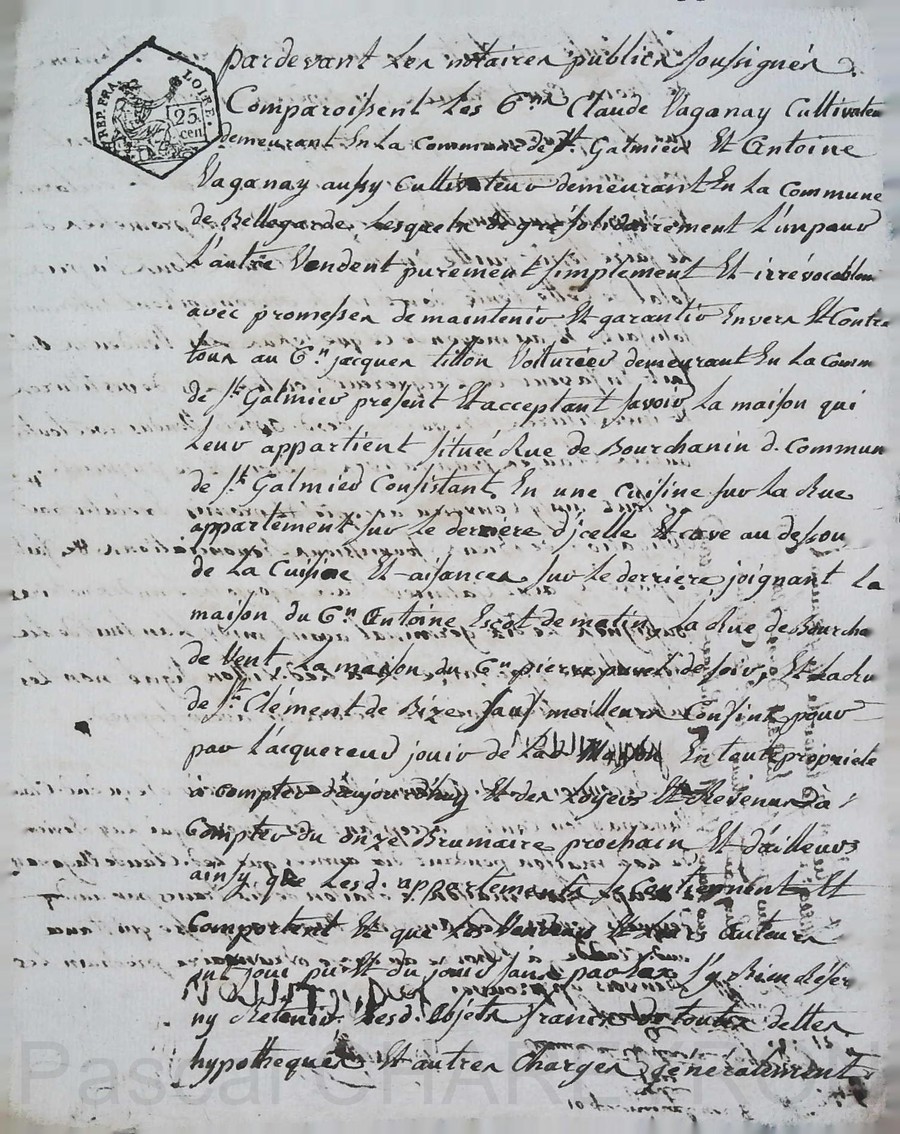 REP. FRA. LOIRE
25. cen
pardevant Les notaires publics soussignés
Comparoissent Les C.ns Claude Vaganay Cultivateu
demeurant En La Commune de St. Galmier Et Antoine
Vaganay aussy Cultivateur demeurant En La Commune
de Bellegarde, Lesquels de gré solidairement L'un pour
L'autre Vendent purement simplement Et irrévocablem
avec promesses de maintenir Et garantir Envers Et Contre
tous au C.n jacques tillon Voiturier demeurant En La Comm
de St. Galmier present Et acceptant savoir La maison qui
Leur appartient située Rue de Bourchanin d. Commun
de St. Galmier Consistant En une Cuisine sur La Rue
appartement sur Le derriere d'jcelle Et cave au dessou
de La Cuisine Et aisances sur Le derriere, joignant La
maison du C.n Antoine Escôt de matin, La Rue de Bourcha
de Vent, La maison du C.n pierre de soir, Et La Ru
de St. Clément de Bize, sauf meilleurs Confins pour
par L'acquereur jouir de La Maison En toute propriete
à Compter d'aujourd'huy Et des Loyers Et Revenus à
Compter du onze Brumaire prochain Et d'ailleurs
ainsy que Lesd. appartements se Contiennent Et
Comportent Et que Les Vendeurs Et Leurs Auteurs
ont joui pu Et du jouir sans par Eux s'y Rien Réser
ny Retenir. Lesd. Objets francs de toutes dettes
hypotheques Et autres Charges generalement
Pascal CHAR